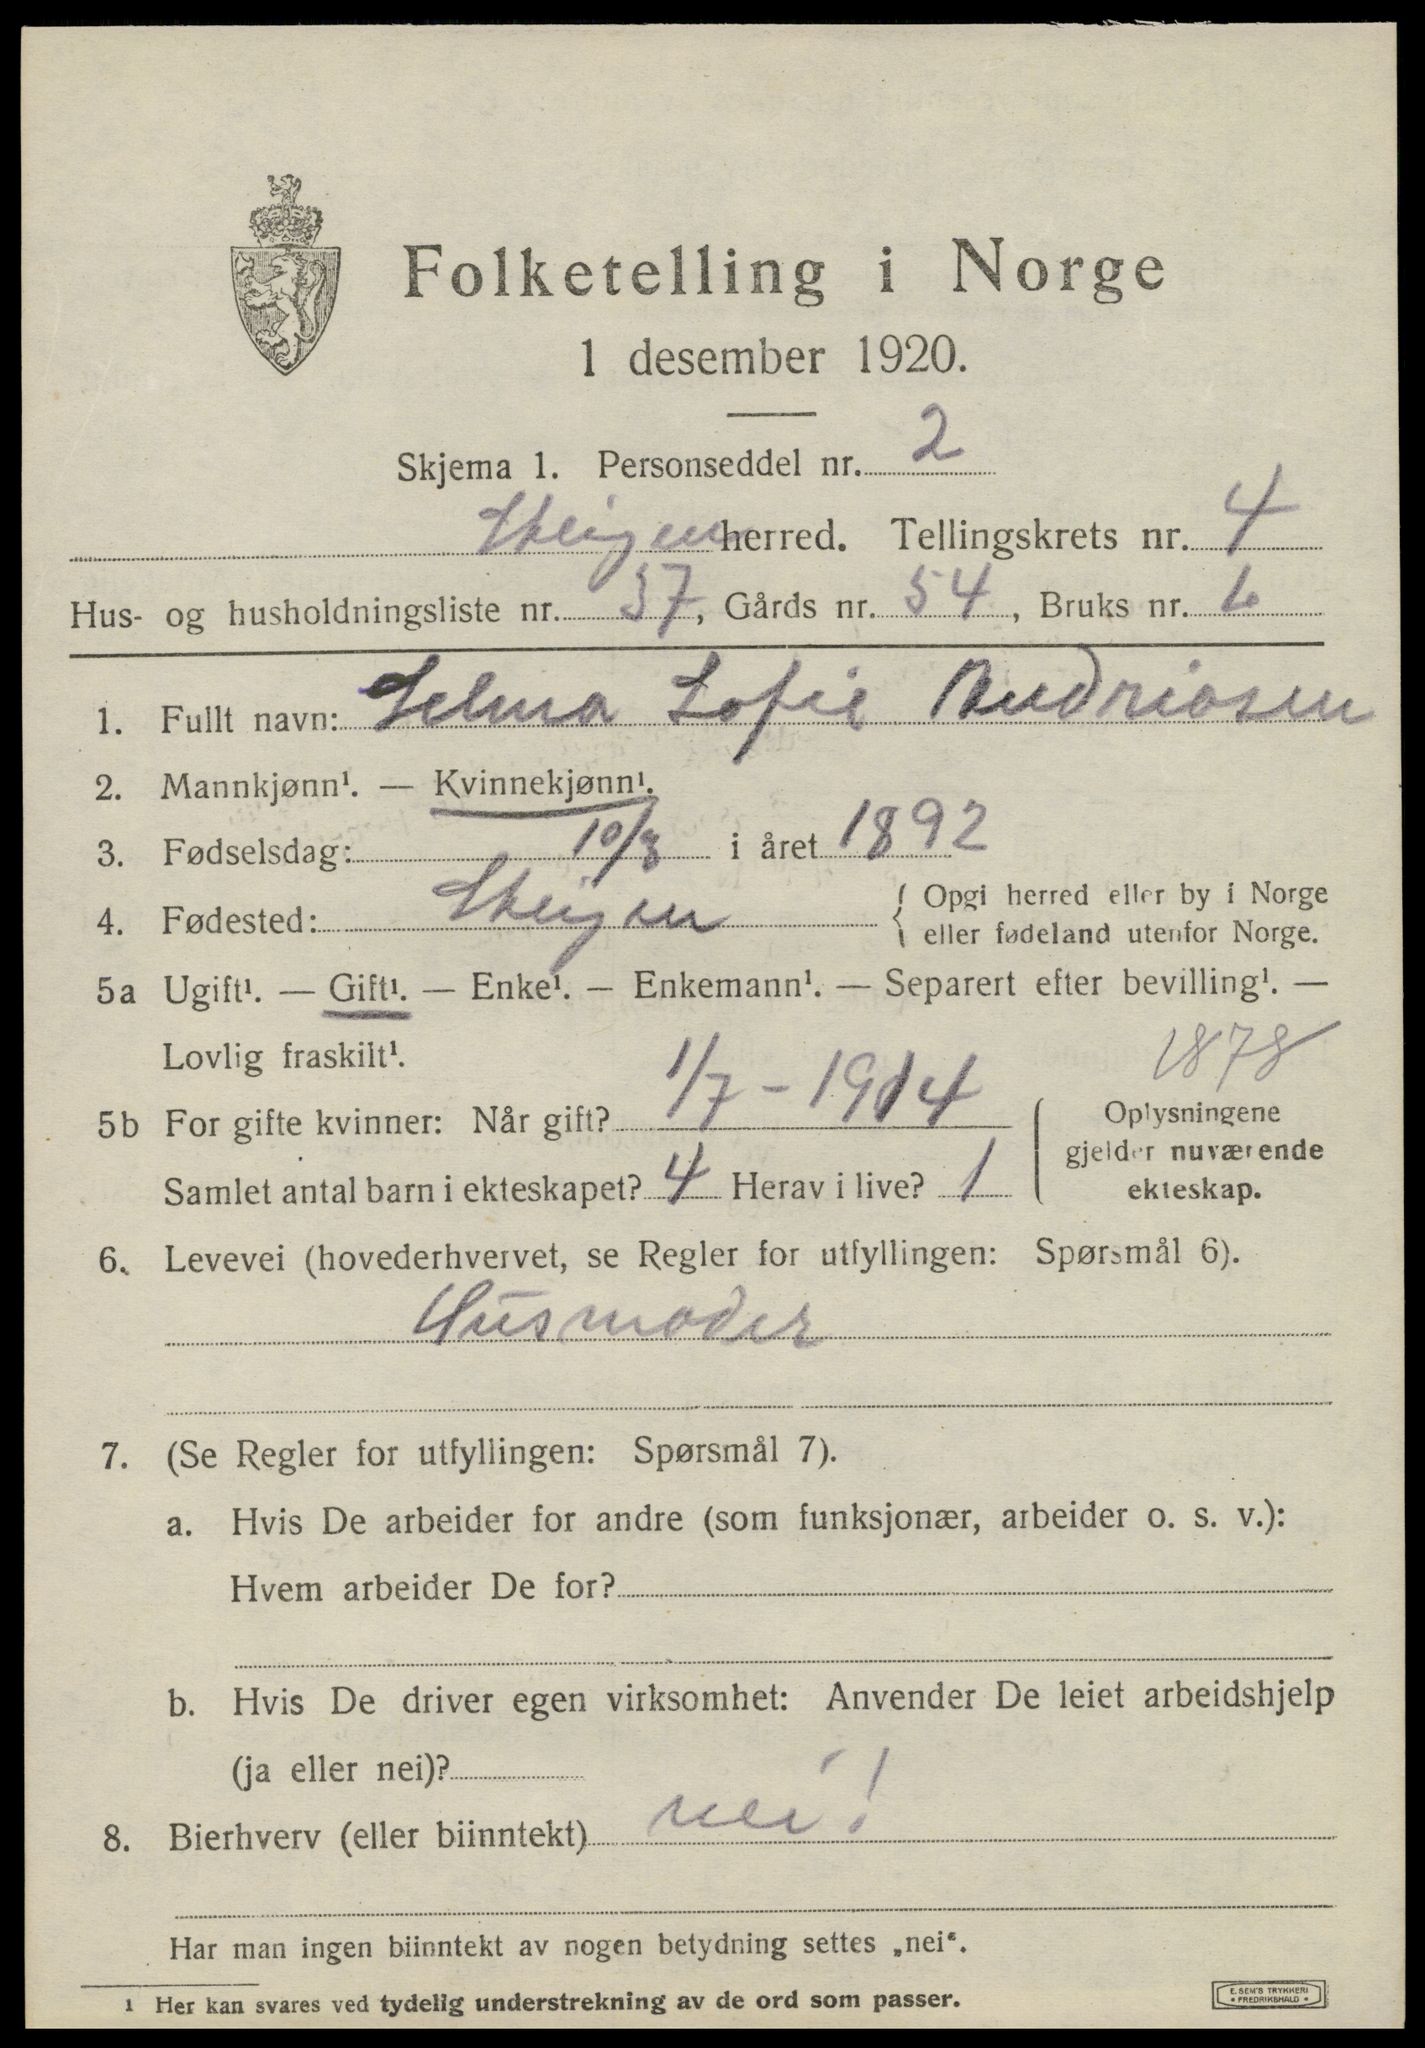 Folketelling i Norge
1 desember 1920.
Skjema 1. Personseddel nr. 2
Steigen herred. Tellingskrets nr. 4
Hus- og husholdningsliste nr. 37, Gårds nr. 54, Bruks nr. 6
1. Fullt navn: Selma Sofie Andreasen
2. Mannkjønn¹. — Kvinnekjønn¹.
3. Fødselsdag: 10/8 i året 1892
4. Fødested: Steigen { Opgi herred eller by i Norge
eller fødeland utenfor Norge.
5a Ugift¹. — Gift¹. — Enke¹. — Enkemann¹. — Separert efter bevilling¹. —
Lovlig fraskilt¹.
1878
5b For gifte kvinner: Når gift? 1/7 - 1914
Samlet antal barn i ekteskapet? 4 Herav i live? 1
Oplysningene
gjelder nuværende
ekteskap.
6. Levevei (hovederhvervet, se Regler for utfyllingen: Spørsmål 6).
Husmoder
7. (Se Regler for utfyllingen: Spørsmål 7).
a. Hvis De arbeider for andre (som funksjonær, arbeider o. s. v.):
Hvem arbeider De for?
b. Hvis De driver egen virksomhet: Anvender De leiet arbeidshjelp
(ja eller nei)?
8. Bierhverv (eller biinntekt) nei!
Har man ingen biinntekt av nogen betydning settes „nei“.
1 Her kan svares ved tydelig understrekning av de ord som passer.
E. SEM'S TRYKKERI
• FREDRIKSHALD •